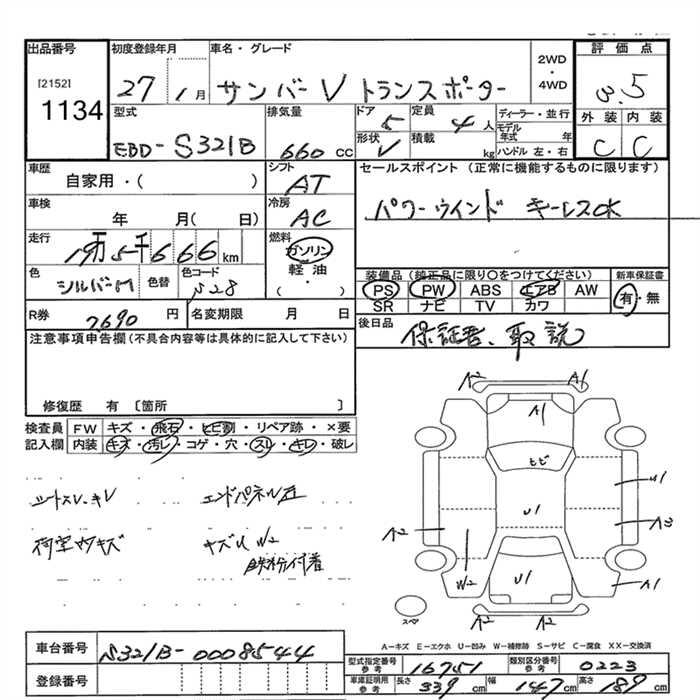 出品番号 初度登録年月 車名・グレード 2WD・4WD 評価点
[2152]
1134
27 1月 サンバーV トランスポーター 3.5
型式 排気量 ドア 定員 ディーラー・並行 外装 内装
EBD-S321B 660cc 5 4人 モデル年式 年 C C
形状 積載 kg ハンドル 左・右
V
車歴 シフト セールスポイント (正常に機能するものに限ります)
自家用・( ) AT
パワーウインド キーレスOK
車検 冷房
年 月( 日) AC
走行 燃料
19万5千666km ガソリン
軽油
・( )
色 色替 色コード
シルバーM N28
装備品 (純正品に限り〇をつけてください) 新車保証書
PS PW ABS エアB AW 有・無
SR ナビ TV カワ
R券 7690円 名変期限 月 日
後日品 保証書、取説
注意事項申告欄(不具合内容等は具体的に記入して下さい)
修復歴 有 〔箇所 〕
検査員記入欄 FW キズ・飛石・ヒビ割・リペア跡・×要
内装 キズ・汚レ・コゲ・穴・スレ・キレ・破レ
シートスレ、キレ エンドパネル左
荷室内キズ キズU W2
鉄粉付着
A2 A1
A1
ヒビ
U1
U1
A2 A3
U1
W2 A1
スペア A2 A2
A-キズ E-エクボ U-凹み W-補修跡 S-サビ C-腐食 XX-交換済
車台番号 S321B-0008544
登録番号
型式指定番号参考 16751 類別区分番号参考 0223
車庫証明用参考 長さ 339cm 幅 147cm 高さ 189cm